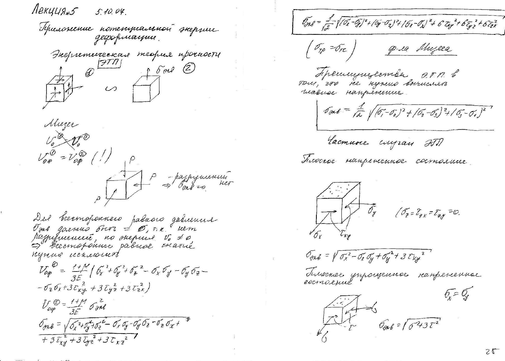 Лекция №5 5.10.04.
Приложение потенциальной энергии
деформации.
Энергетическая теория прочности
ЭТП
① ∽ σэкв ②
Мизес
V₀① V₀②
Vоф① = Vоф② (!)
P
P P
- разрушений нет
⇒ σэкв = 0
Для всестороннего равного давления
σэкв должно быть = 0, т.к. нет
разрушений, но энергия V₀ ≠ 0
⇒ всестороннее равное сжатие
нужно исключить
Vоф① = (1+μ)/3E (σx² + σy² + σz² - σxσy - σyσz -
- σzσx + 3τxy² + 3τyz² + 3τzx²)
Vоф② = (1+μ)/3E σэкв²
σэкв = √(σx² + σy² + σz² - σxσy - σyσz - σzσx +
+ 3τxy² + 3τyz² + 3τzx²)
σэкв = 1/√2 √((σx-σy)² + (σy-σz)² + (σz-σx)² + 6τxy² + 6τyz² + 6τzx²)
(σтр = σтс) ф-ла Мизеса
Преимущества ЭТП в
том, что не нужно вычислять
главное напряжение
σэкв = 1/√2 √((σ₁-σ₂)² + (σ₂-σ₃)² + (σ₃-σ₁)²)
Частные случаи ЭТП
Плоское напряженное состояние.
σy
σx τxy
(σz = τzx = τyz = 0.
σэкв = √(σx² - σxσy + σy² + 3τxy²)
Плоское упрощенное напряженное
состояние
σ
σ τ
σэкв = √(σ² + 3τ²)
25